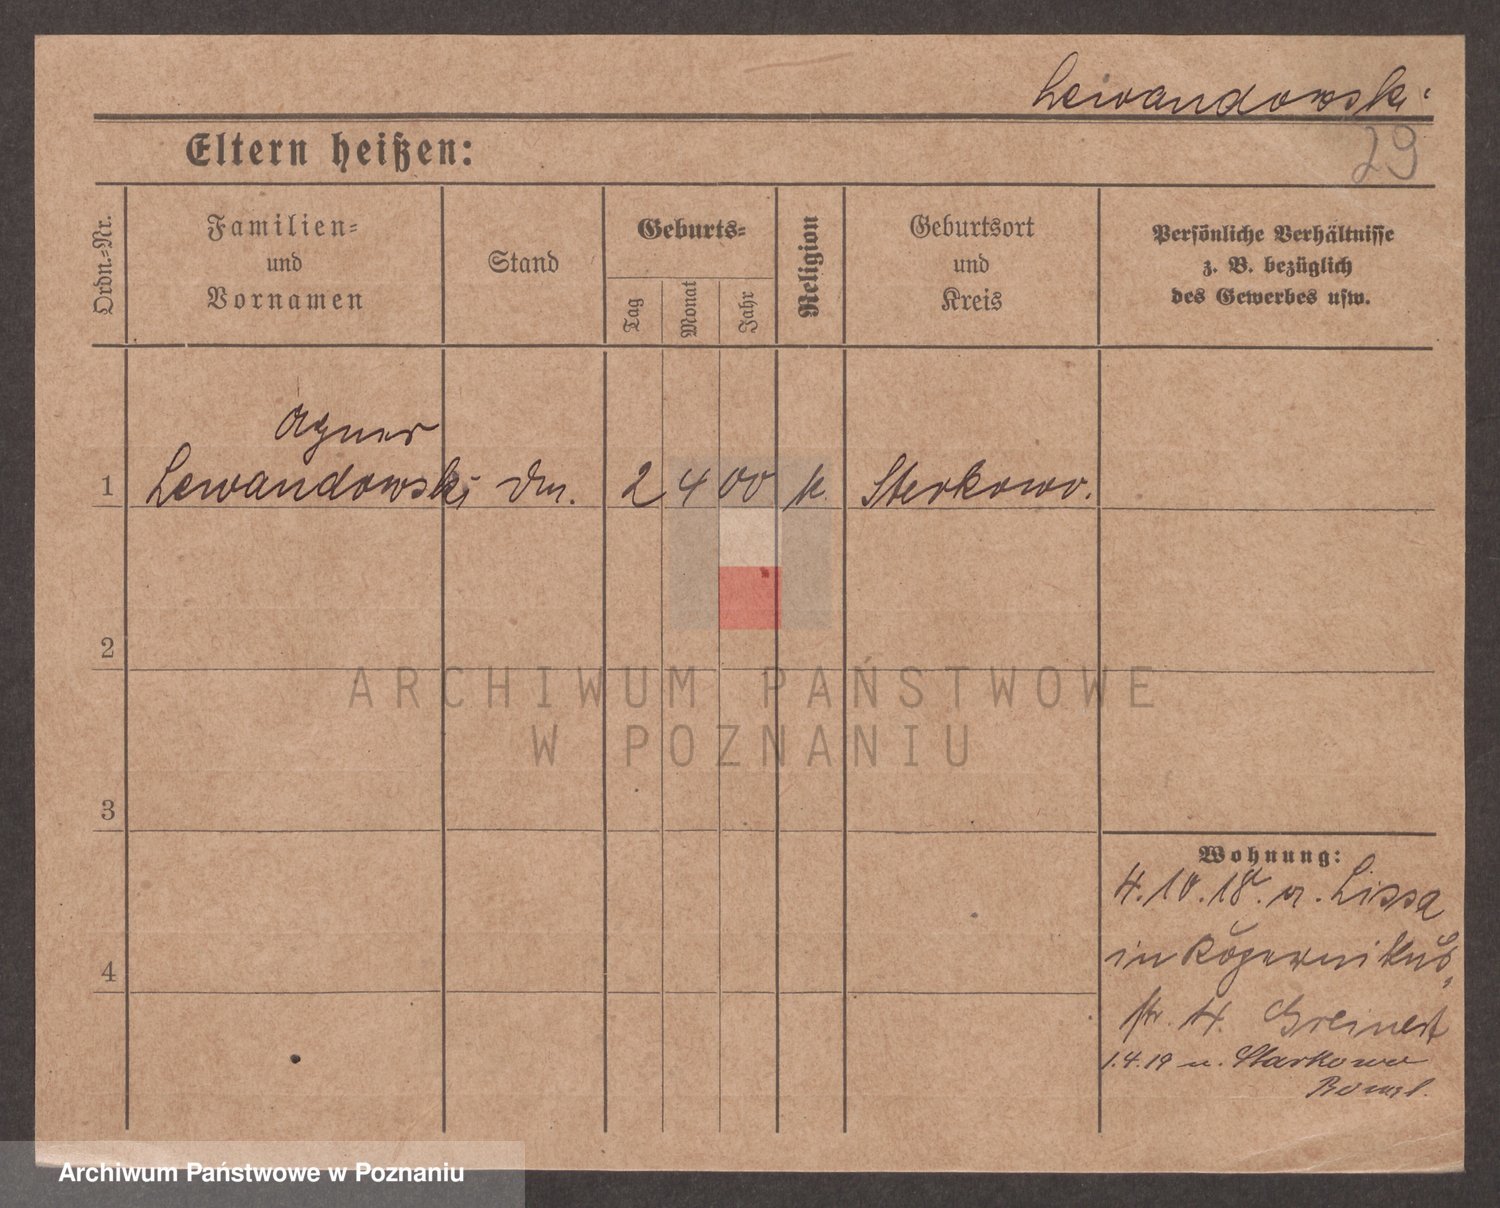 Lewandowski
29
Eltern heißen:
Ordn.-Nr.
Familien-
und
Vornamen
Stand
Geburts-
Tag
Monat
Jahr
Religion
Geburtsort
und
Kreis
Persönliche Verhältnisse
z. B. bezüglich
des Gewerbes usw.
Agnes
1 Lewandowski Dm. 2 4 00 k. Sterkowo.
2
ARCHIWUM PAŃSTWOWE
W POZNANIU
3
Wohnung:
4.10.18. a. Lissa
in Kopernikus
4
str. 4. Greinert
1.4.19 n. Starkowo
Bomst.
Archiwum Państwowe w Poznaniu